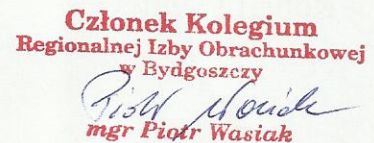 Członek Kolegium
Regionalnej Izby Obrachunkowej
w Bydgoszczy
Piotr Wasiak
mgr Piotr Wasiak